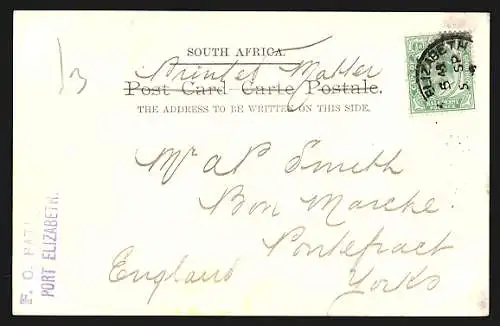 SOUTH AFRICA.
Printed Matter
Post Card - Carte Postale.
THE ADDRESS TO BE WRITTEN ON THIS SIDE.
Mr A P Smith
Bon Marche.
Pontefract
Yorks
England
PORT ELIZABETH.
ELIZABETH